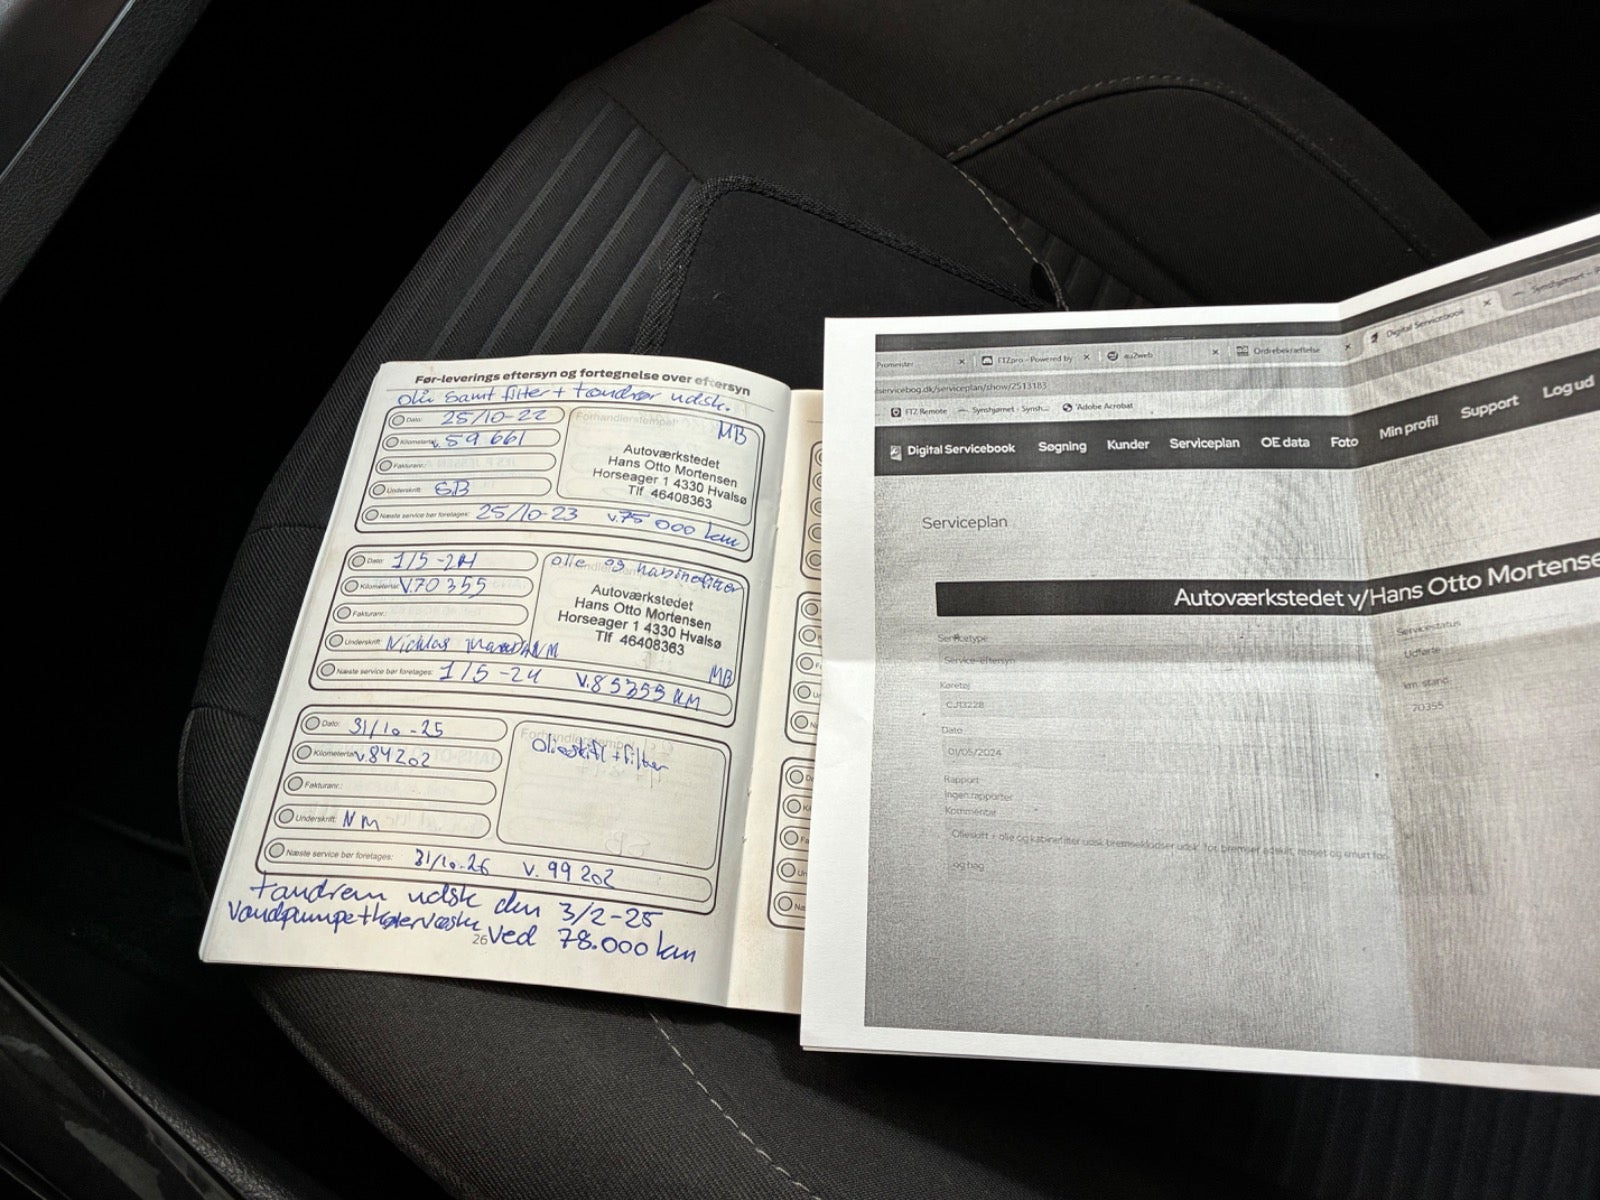 Før-leverings eftersyn og fortegnelse over eftersyn
olie samt filter + tandrem udsk.
Dato: 25/10-22
Forhandlerstempel:
MB
Kilometertal: v. 59 661
Autoværkstedet
Hans Otto Mortensen
Horseager 1 4330 Hvalsø
Tlf 46408363
Fakturanr.:
Underskrift: SB
Næste service bør foretages: 25/10-23 v.75 000 km
Dato: 1/5-24
olie og kabinefilter
Kilometertal: V.70 355
Autoværkstedet
Hans Otto Mortensen
Horseager 1 4330 Hvalsø
Tlf 46408363
Fakturanr.:
Underskrift: Nicklas NM
MB
Næste service bør foretages: 1/5-24 v.85355 KM
Dato: 31/10-25
Forhandlerstempel:
Olieskift + filter
Kilometertal: v.84202
Fakturanr.:
Underskrift: NM
Næste service bør foretages: 31/10.26 v. 99 202
tandrem udsk den 3/2-25
Vandpumpe+kølervæske ved 78.000 km
26
Promeister
FTZpro - Powered by
eu2web
Ordrebekræftelse
Digital Servicebook
Synshjørnet -
servicebog.dk/serviceplan/show/2513183
FTZ Remote
Synshjørnet - Synsh...
Adobe Acrobat
Digital Servicebook Søgning Kunder Serviceplan OE data Foto Min profil Support Log ud
Serviceplan
Autoværkstedet v/Hans Otto Mortense
Servicetype
Servicestatus
Service-eftersyn
Udførte
Køretøj
km. stand
CJ13228
70355
Dato
01/05/2024
Rapport
Ingen rapporter
Kommentar
Olieskift + olie og kabinefilter udsk bremseklodser udsk for bremser adskilt, renset og smurt for
og bag